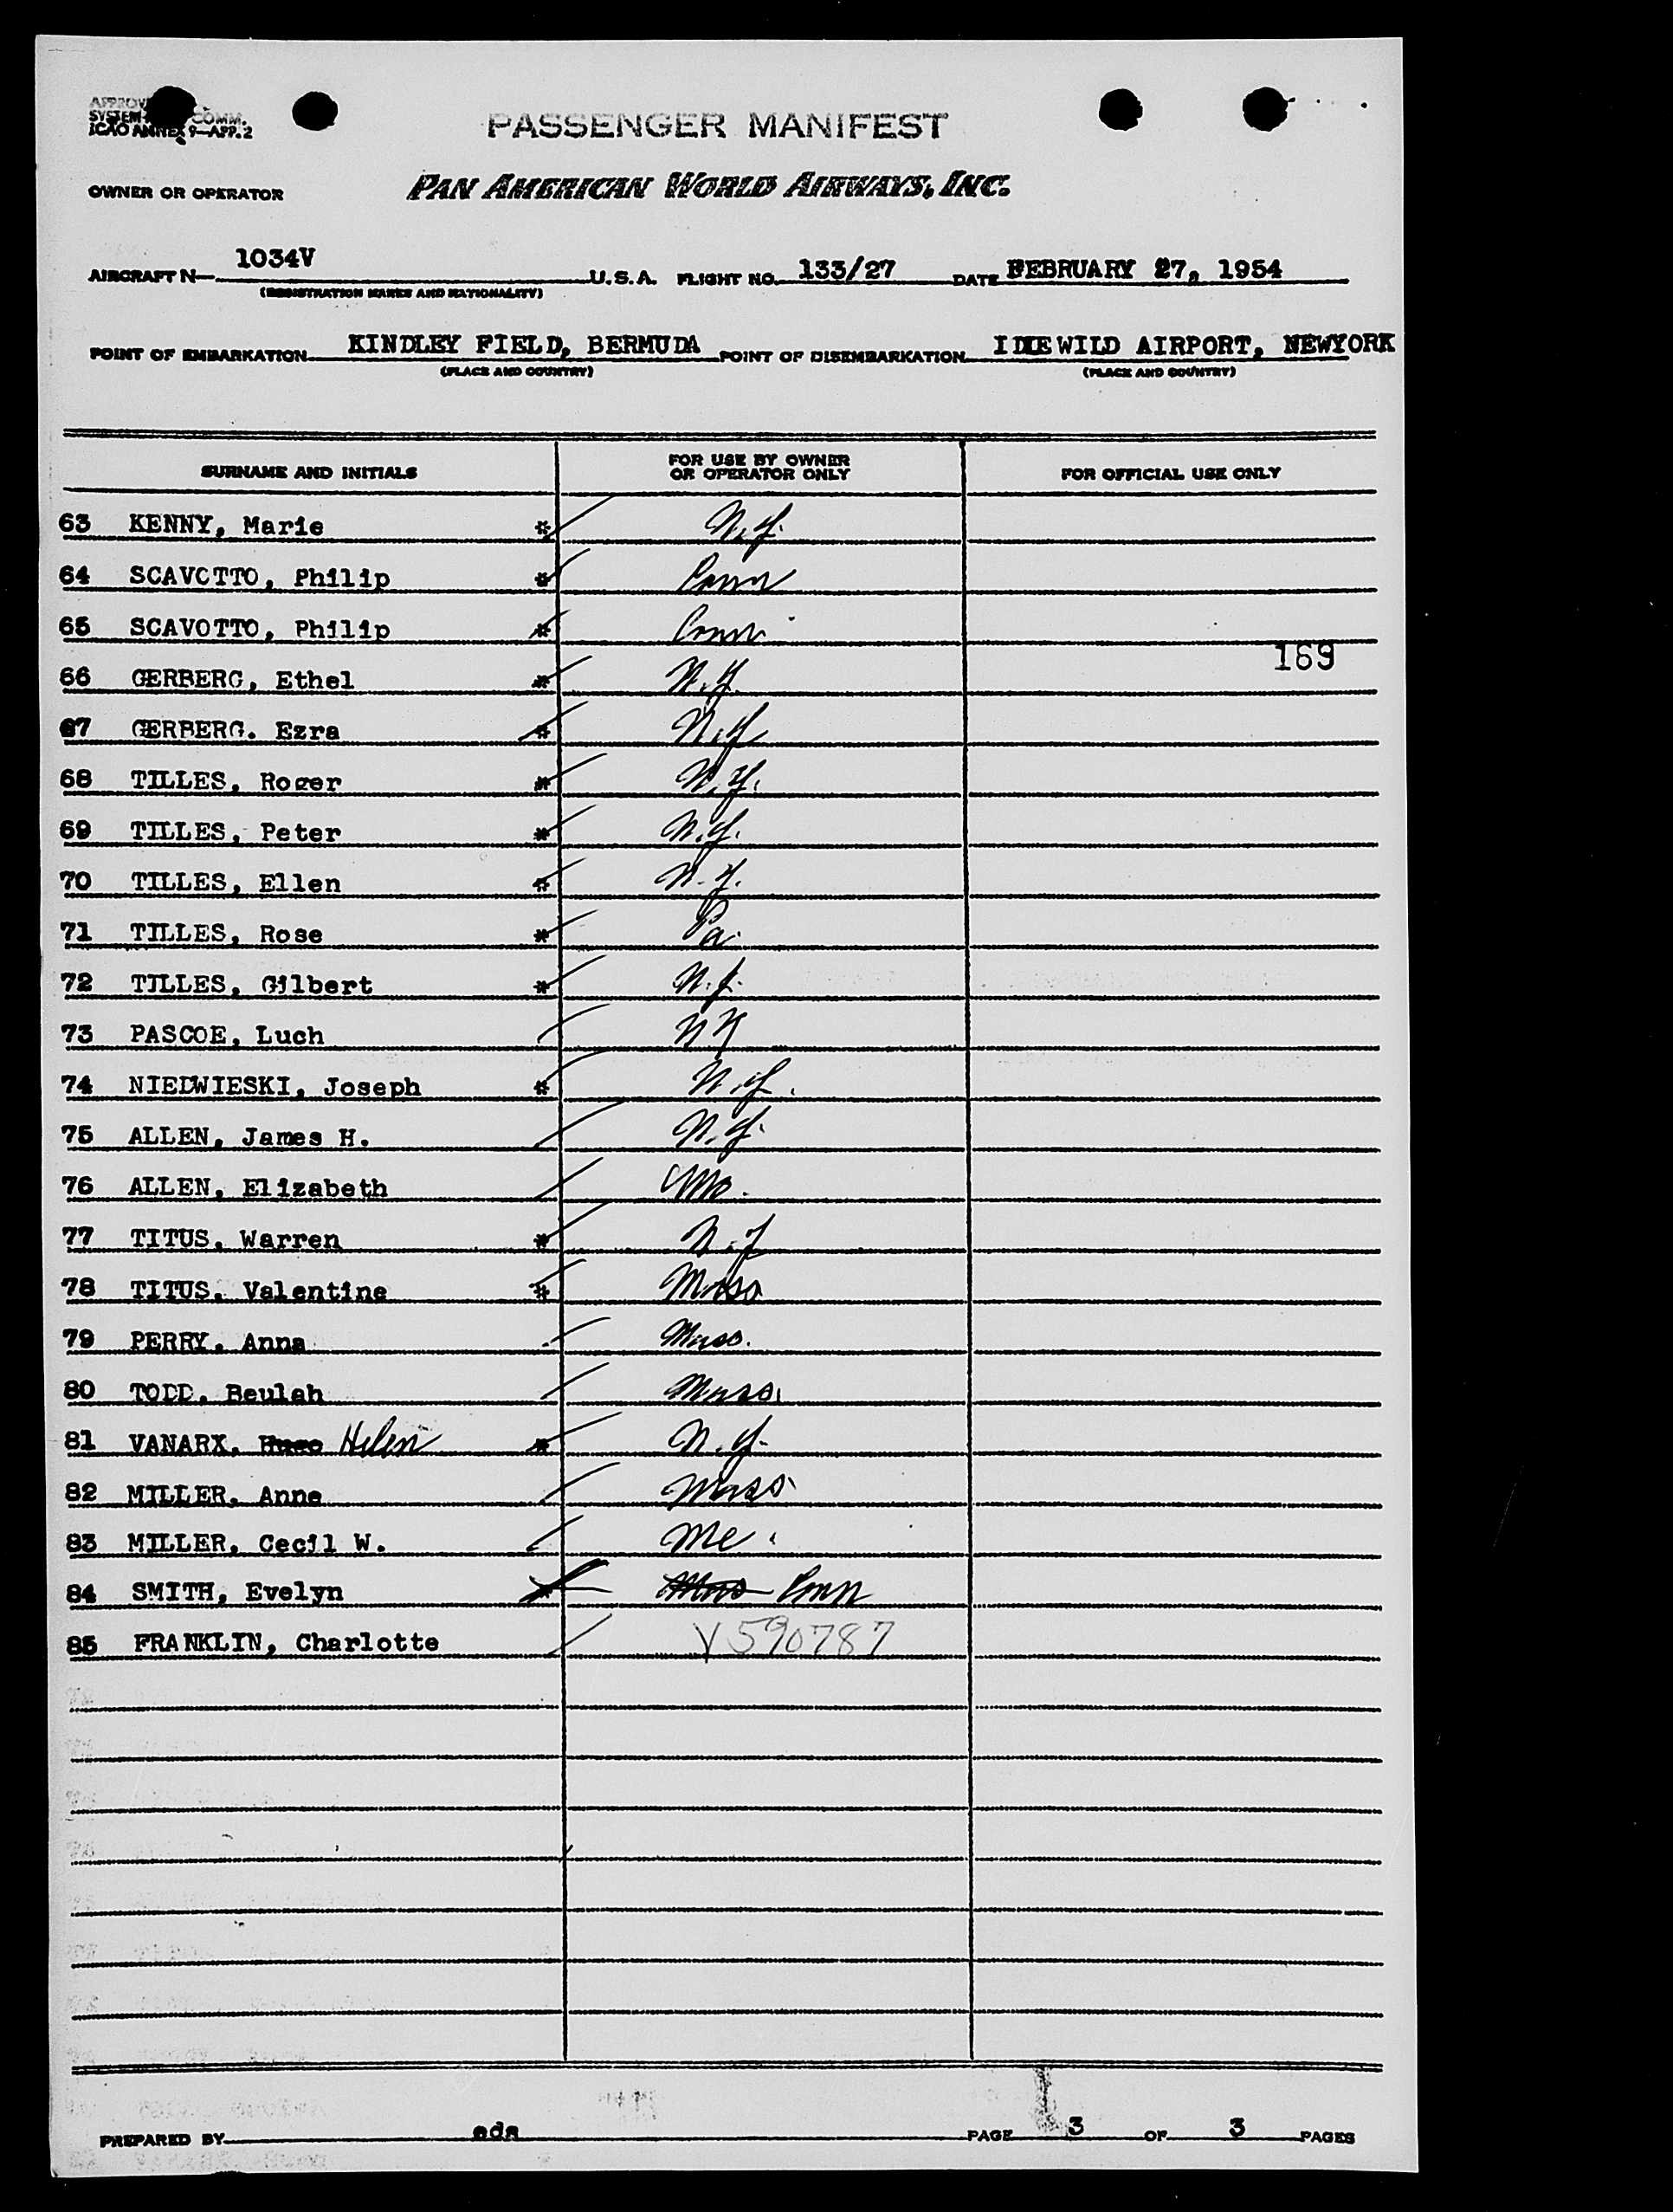 APPROV
SYSTEM COMM.
ICAO ANNEX 9—APP. 2
PASSENGER MANIFEST
OWNER OR OPERATOR PAN AMERICAN WORLD AIRWAYS, INC.
AIRCRAFT N— 1034V U.S.A. FLIGHT NO. 133/27 DATE FEBRUARY 27, 1954
(REGISTRATION MARKS AND NATIONALITY)
POINT OF EMBARKATION KINDLEY FIELD, BERMUDA POINT OF DISEMBARKATION IDLEWILD AIRPORT, NEWYORK
(PLACE AND COUNTRY) (PLACE AND COUNTRY)
SURNAME AND INITIALS FOR USE BY OWNER OR OPERATOR ONLY FOR OFFICIAL USE ONLY
63 KENNY, Marie * N.Y.
64 SCAVOTTO, Philip * Conn
65 SCAVOTTO, Philip * Conn
169
66 GERBERG, Ethel * N.Y.
67 GERBERG. Ezra * N.Y
68 TILLES, Roger * N.Y.
69 TILLES, Peter * N.Y.
70 TILLES, Ellen * N.Y.
71 TILLES, Rose * Pa.
72 TILLES, Gilbert * N.J.
73 PASCOE, Luch NY
74 NIEDWIESKI, Joseph * N.Y.
75 ALLEN, James H. N.Y.
76 ALLEN, Elizabeth Mo.
77 TITUS, Warren * N.J
78 TITUS. Valentine * Mass
79 PERRY. Anna Mass.
80 TODD. Beulah Mass.
81 VANARX, Hugo Helen * N.Y.
82 MILLER. Anne Mass.
83 MILLER. Cecil W. Me.
84 SMITH, Evelyn * Mass Conn
85 FRANKLIN, Charlotte V590787
PREPARED BY eds PAGE 3 OF 3 PAGES